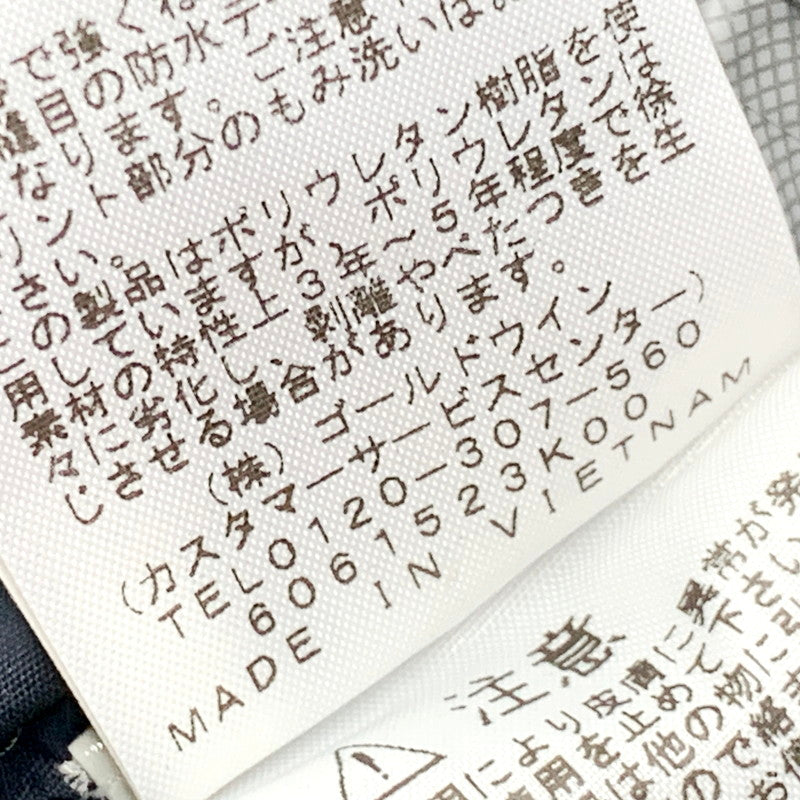 で強く
目の防水テ
なります。ご注意
リント部分のもみ洗いは。
さい。
この製品はポリウレタン樹脂を使
用していますが、ポリウレタンは
素材の特性上、3年～5年程度で徐
々に劣化し、剥離やべたつきを生
じさせる場合があります。
(株)ゴールドウイン
(カスタマーサービスセンター)
TEL0120-307-560
6061523K00
MADE IN VIETNAM
注意
により皮膚に異常が発
使用を止めて下さい
は他の物に引
ので絡ま